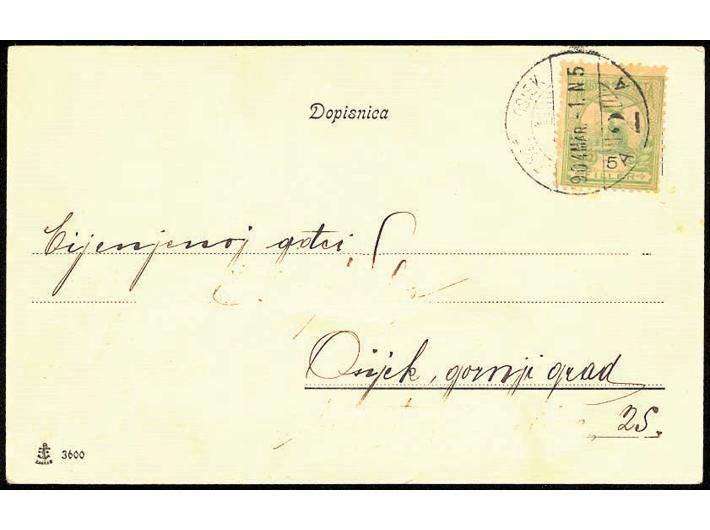 Dopisnica
904 MAR. -1. N 5
A
5
FILLER
Cijenjenoj gđci
Osijek, gornji grad
25.
3600